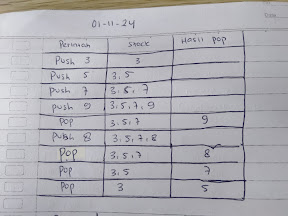 01-11-24
Perintah Stack Hasil Pop
Push 3 3
Push 5 3, 5
Push 7 3, 5, 7
Push 9 3, 5, 7, 9
Pop 3, 5, 7 9
Push 8 3, 5, 7, 8
Pop 3, 5, 7 8
Pop 3, 5 7
Pop 3 5